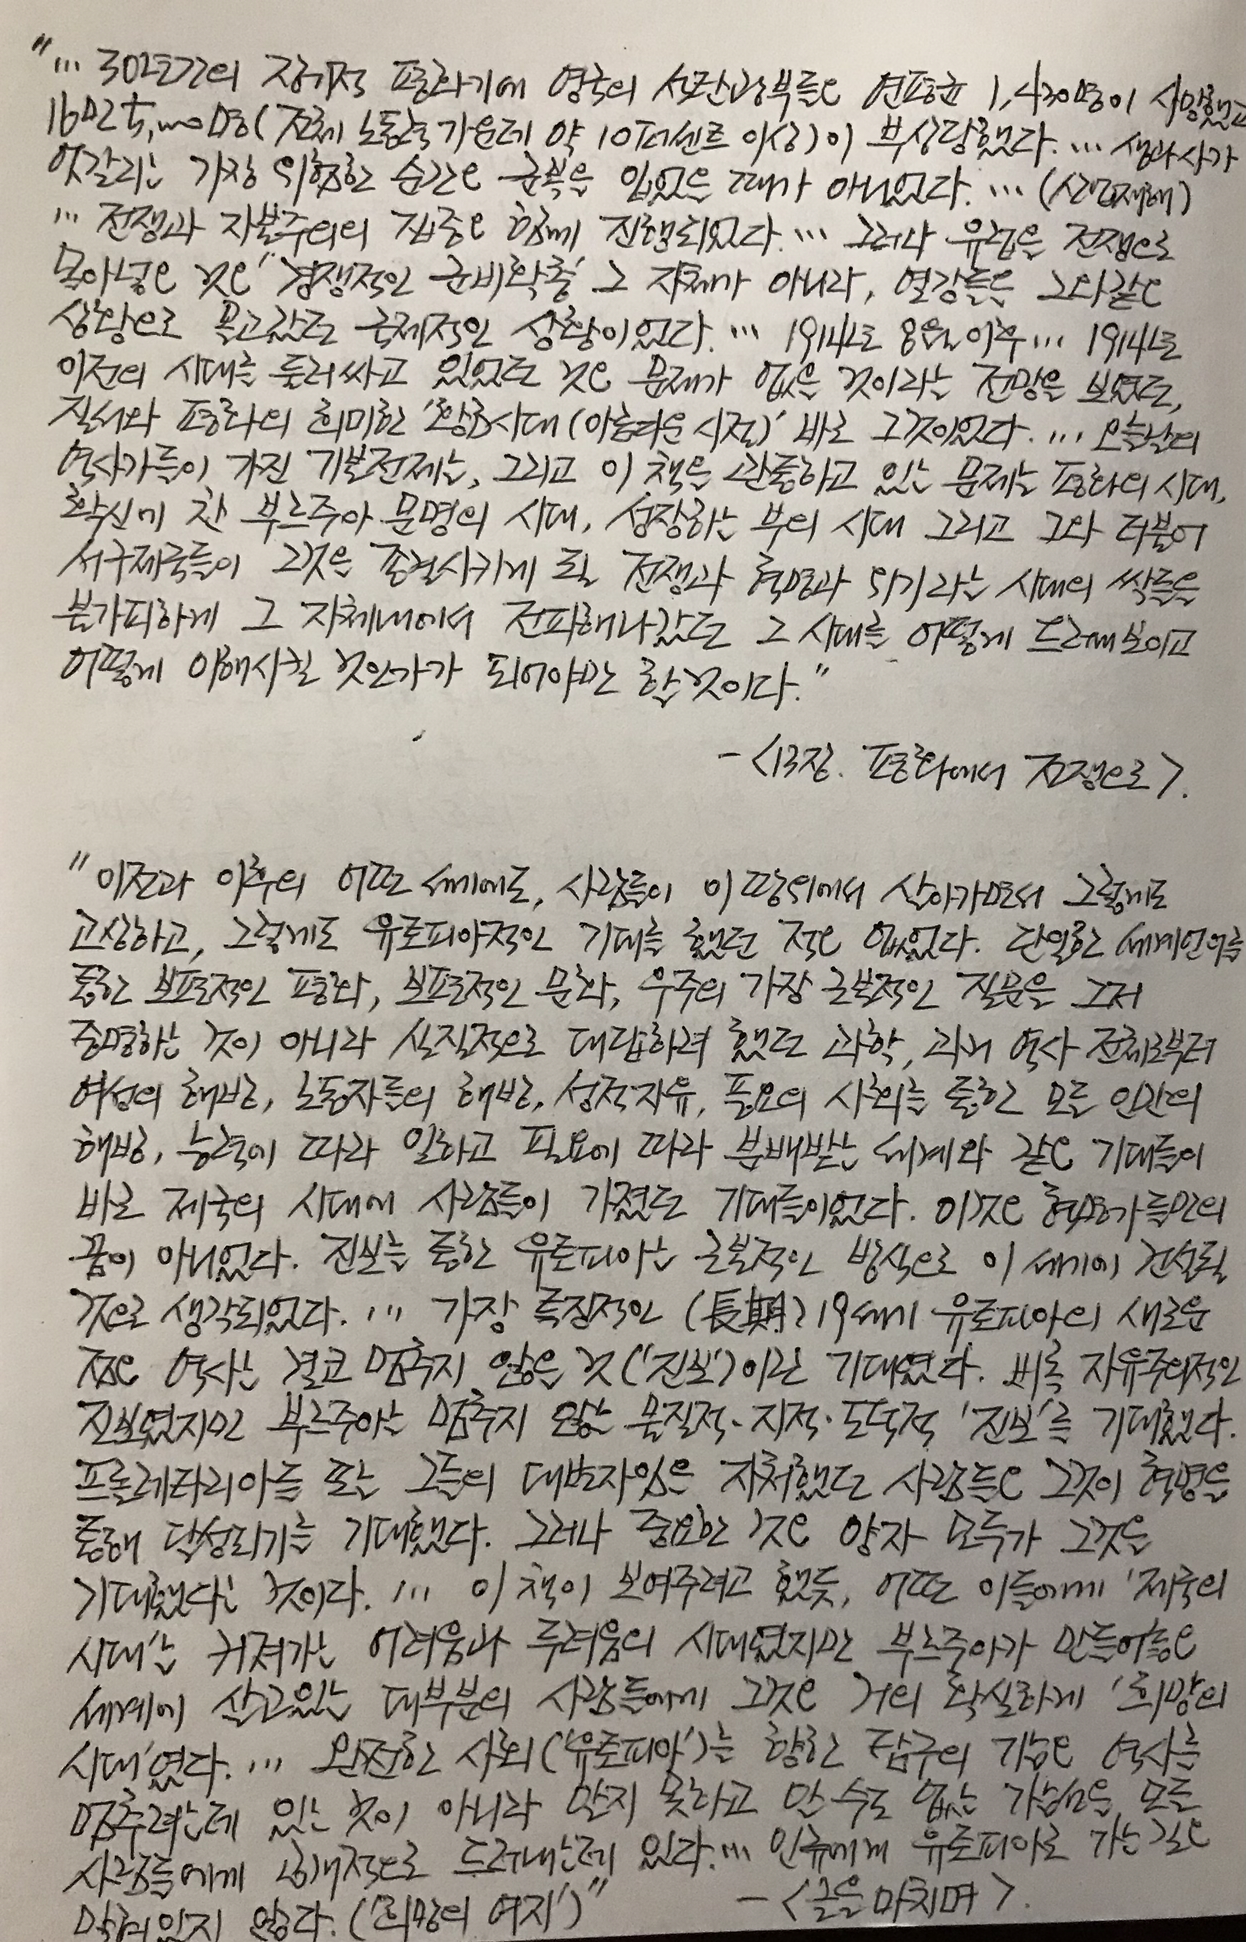 "… 30년간의 장기적 평화기에 영국의 석탄광부들은 연평균 1,430명이 사망했고
16만5,000명(전체 노동력 가운데 약 10퍼센트 이상)이 부상당했다. … 생과 사가
엇갈리는 가장 위험한 순간은 군복을 입었을 때가 아니었다. … (산업재해)
… 전쟁과 자본주의의 집중은 함께 진행되었다. … 그러나 유럽을 전쟁으로
몰아넣은 것은 '경쟁적인 군비확충' 그 자체가 아니라, 열강들을 그와같은
상황으로 몰고갔던 국제적인 상황이었다. … 1914년 8월 이후 … 1914년
이전의 시대를 둘러싸고 있었던 것은 문제가 없을 것이라는 전망을 보였던,
질서와 평화의 희미한 '황금시대(아름다운 시절)' 바로 그것이었다. … 오늘날의
역사가들이 가진 기본전제는, 그리고 이 책을 관통하고 있는 문제는 평화의 시대,
확신에 찬 부르주아 문명의 시대, 성장하는 부의 시대 그리고 그와 더불어
서구제국들이 그것을 종결시키게 될 전쟁과 혁명과 위기라는 시대의 싹들을
불가피하게 그 자체내에서 전파해나갔던 그 시대를 어떻게 드러내보이고
어떻게 이해시킬 것인가가 되어야만 할 것이다."
- <13장. 평화에서 전쟁으로>.
"이전과 이후의 어떤 세기에도, 사람들이 이 땅위에서 살아가면서 그렇게도
고상하고, 그렇게도 유토피아적인 기대를 했던 적은 없었다. 단일한 세계언어를
통한 보편적인 평화, 보편적인 문화, 우주의 가장 근본적인 질문을 그저
증명하는 것이 아니라 실질적으로 대답하려 했던 과학, 과거 역사 전체로부터
여성의 해방, 노동자들의 해방, 성적자유, 풍요의 사회를 통한 모든 인간의
해방, 능력에 따라 일하고 필요에 따라 분배받는 세계와 같은 기대들이
바로 제국의 시대에 사람들이 가졌던 기대들이었다. 이것은 혁명가들만의
꿈이 아니었다. 진보를 통한 유토피아는 근본적인 방식으로 이 세기에 건설될
것으로 생각되었다. … 가장 특징적인 (長期)19세기 유토피아의 새로운
점은 역사는 결코 멈추지 않을 것('진보')이란 기대였다. 비록 자유주의적인
진보였지만 부르주아는 멈추지 않는 물질적·지적·도덕적 '진보'를 기대했다.
프롤레타리아들 또는 그들의 대변자임을 자처했던 사람들은 그것이 혁명을
통해 달성되기를 기대했다. 그러나 중요한 것은 양자 모두가 그것을
기대했다는 것이다. … 이 책이 보여주려고 했듯, 어떤 이들에게 '제국의
시대'는 커져가는 어려움과 두려움의 시대였지만 부르주아가 만들어놓은
세계에 살고있는 대부분의 사람들에게 그것은 거의 확실하게 '희망의
시대'였다. … 완전한 사회('유토피아')를 향한 탐구의 기능은 역사를
멈추려는데 있는 것이 아니라 알지 못하고 알 수도 없는 가능성을 모든
사람들에게 공개적으로 드러내는데 있다. … 인류에게 유토피아로 가는 길은
막혀있지 않다. ('희망의 여지')"
- <글을 마치며>.